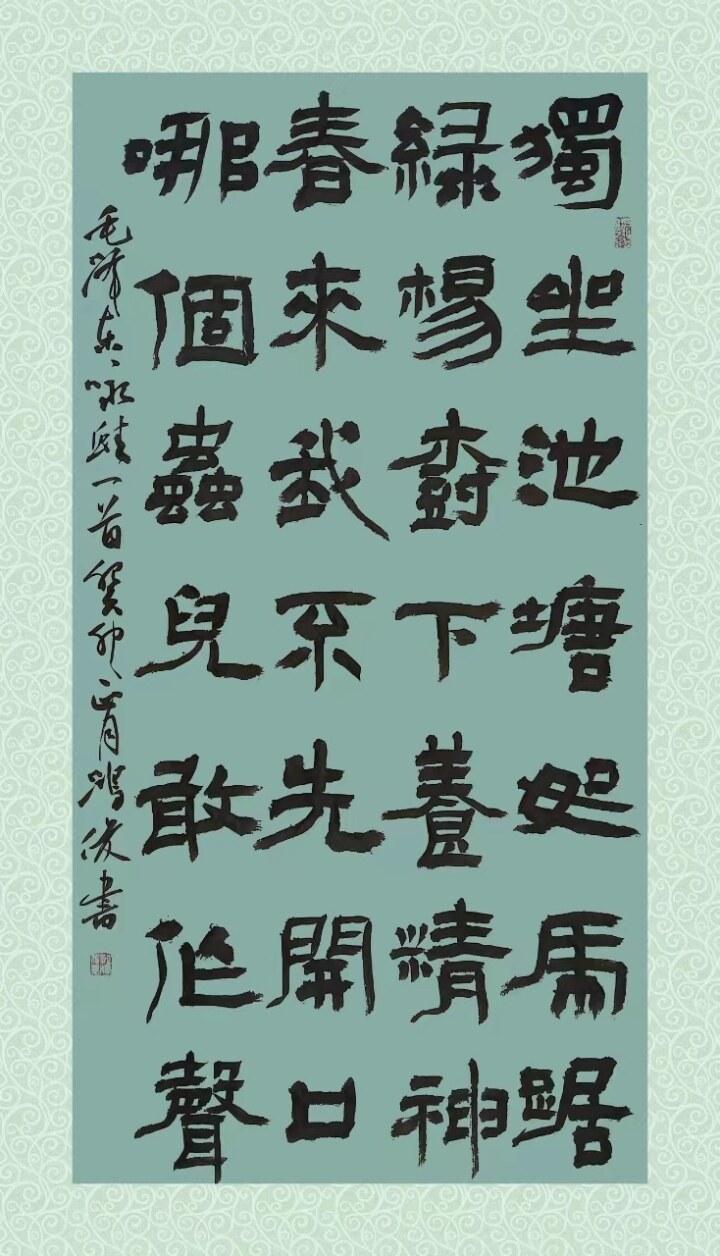 獨坐池塘如虎踞
綠楊樹下養精神
春來我不先開口
哪個蟲兒敢作聲
毛澤东咏蛙一首癸卯正月鴻俊書